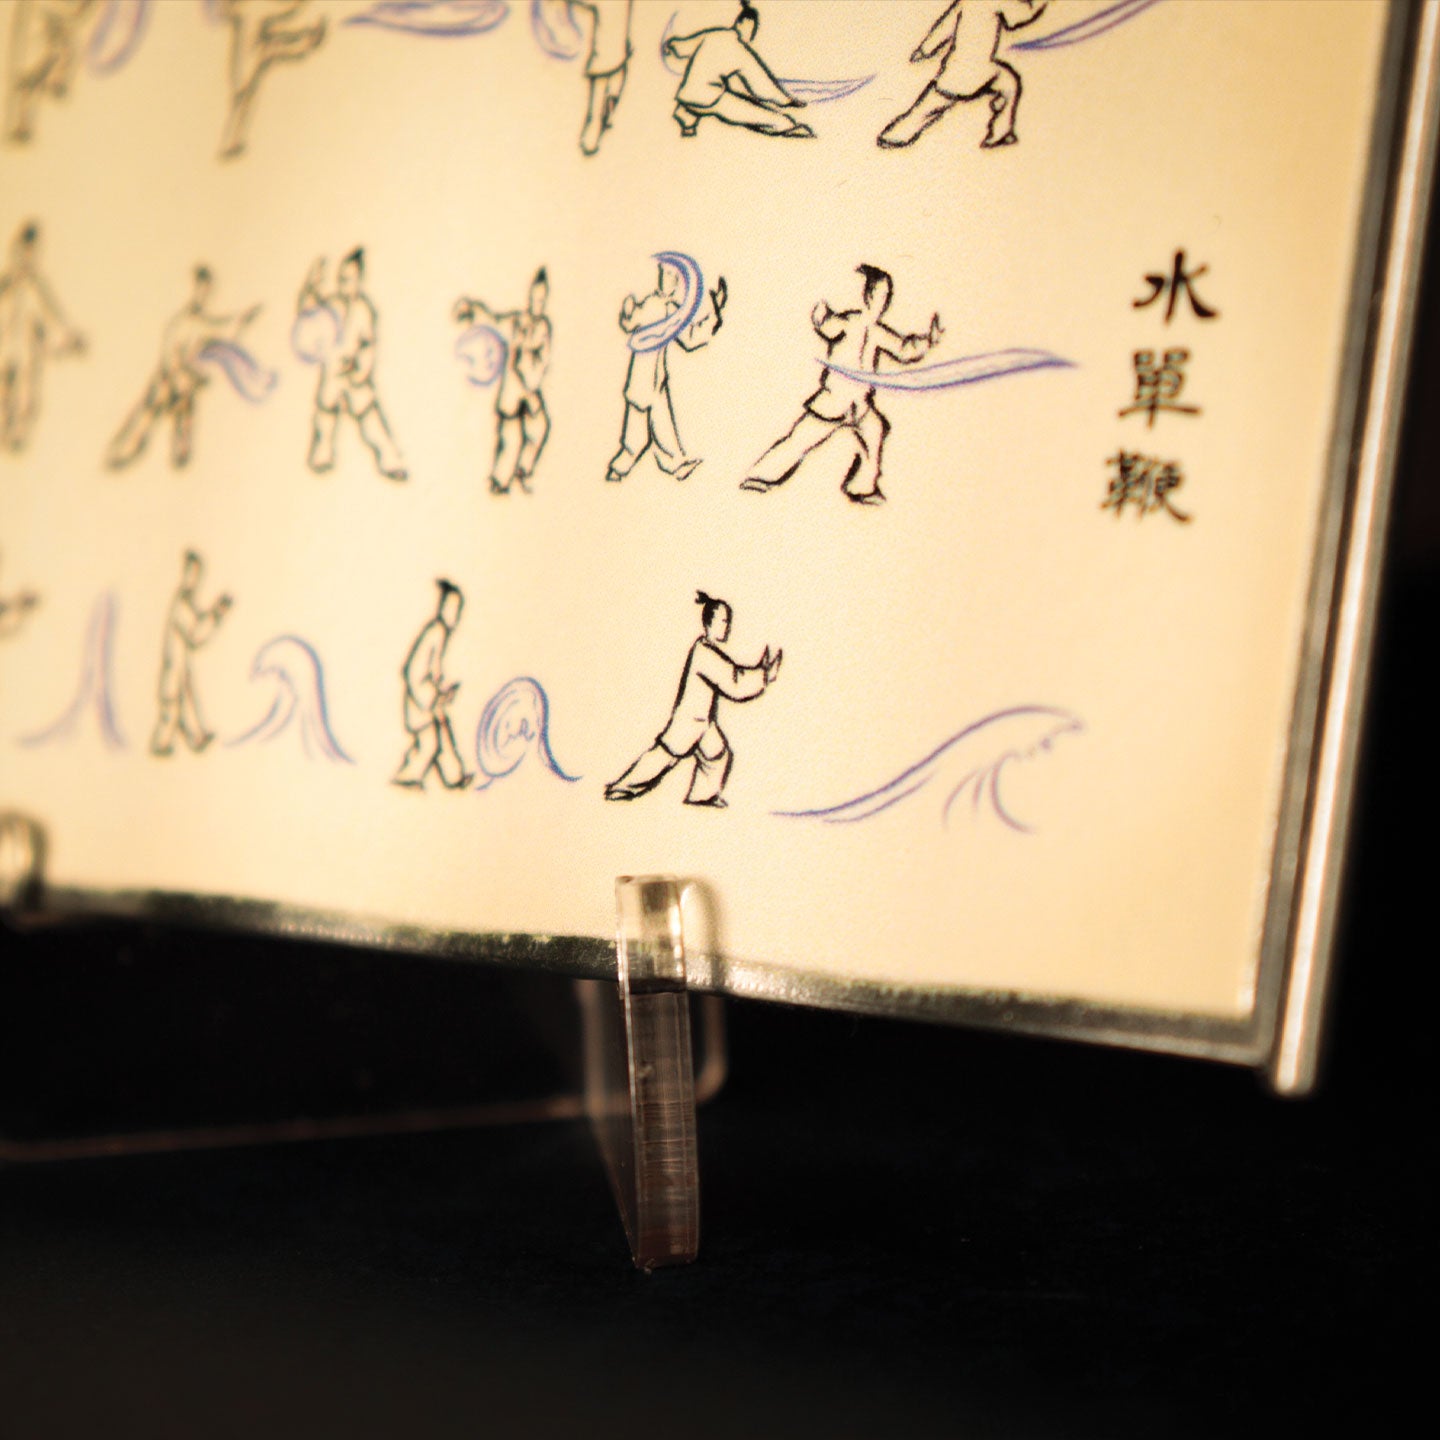 水單鞭